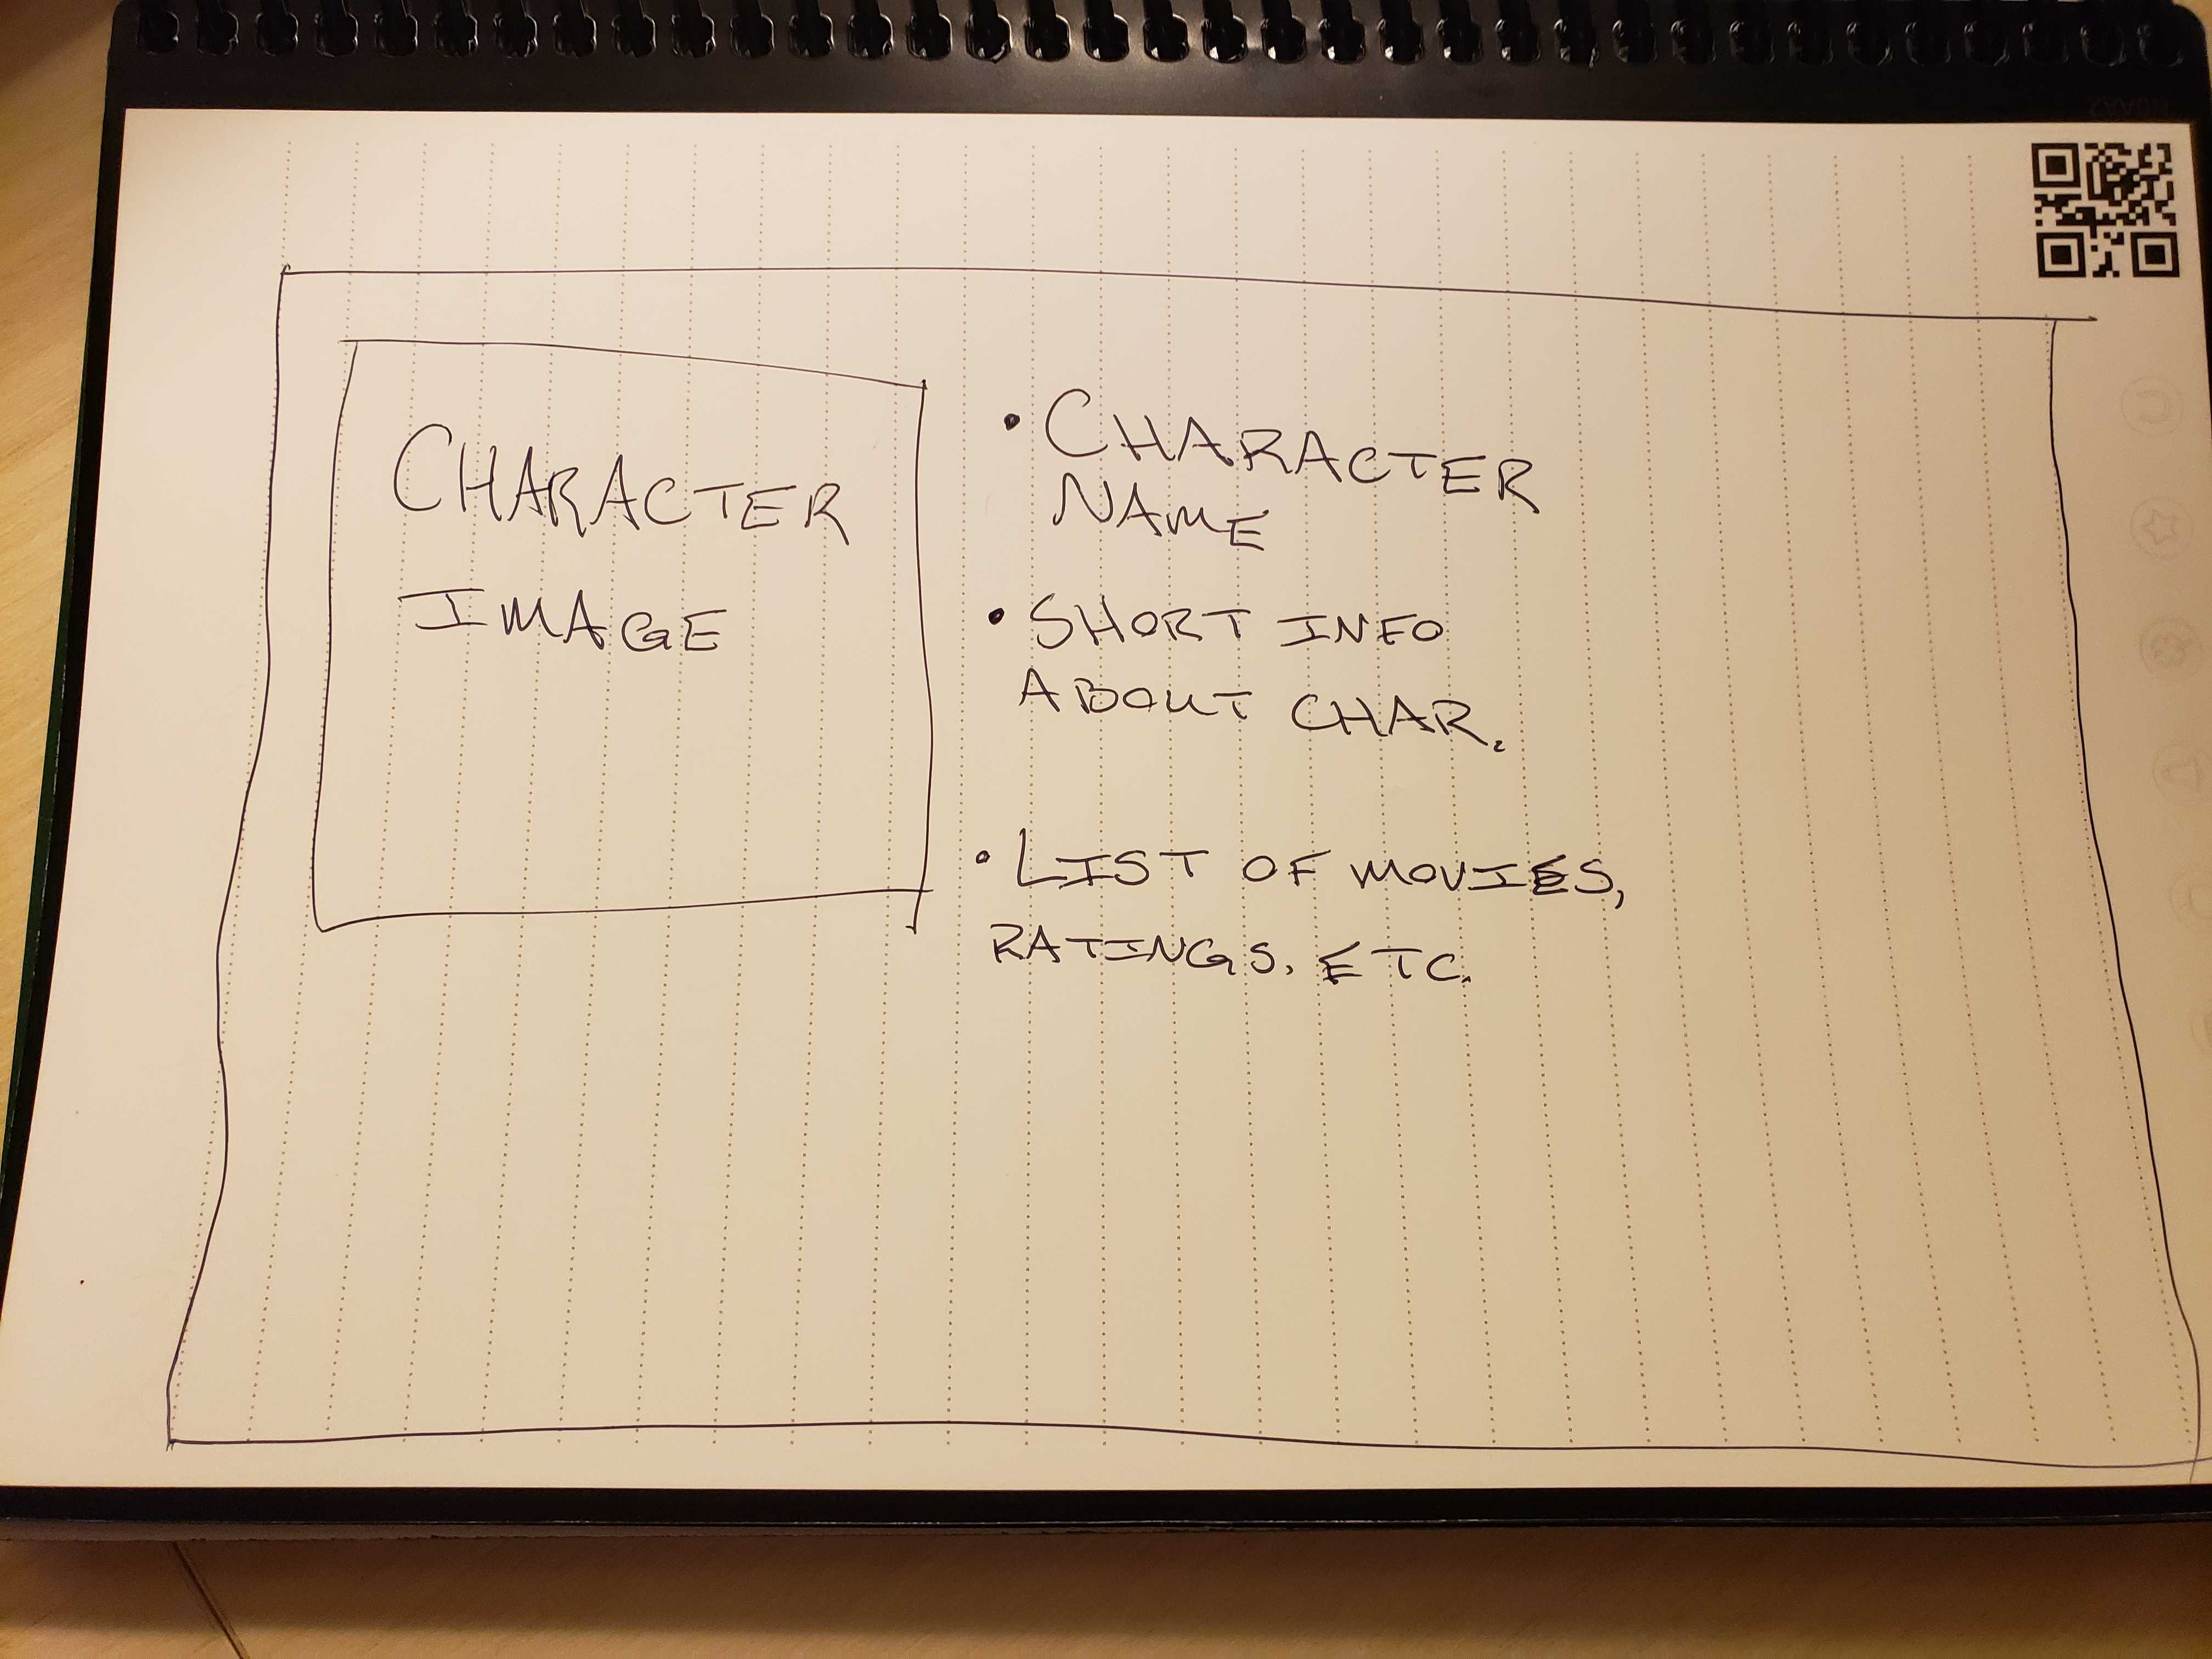 CHARACTER
IMAGE
• CHARACTER
NAME
• SHORT INFO
ABOUT CHAR.
• LIST OF MOVIES,
RATINGS, ETC.